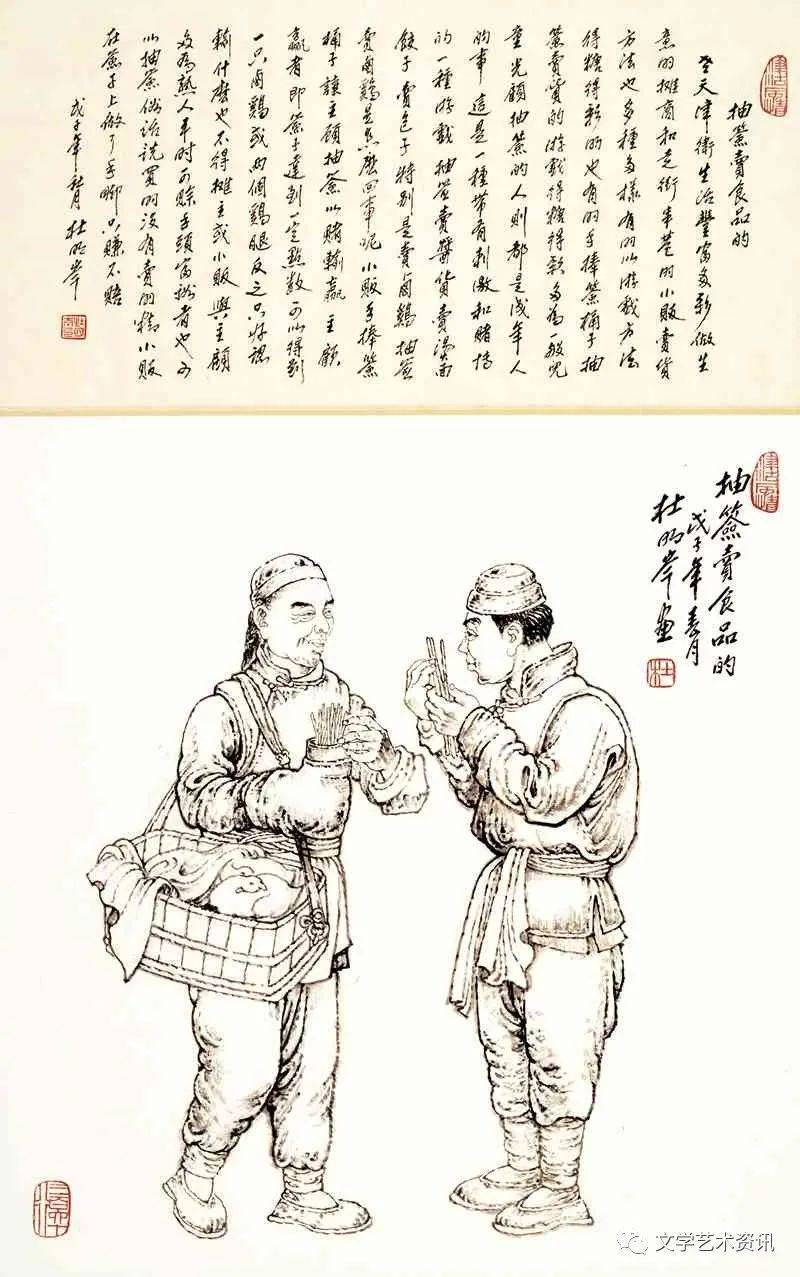 抽簽賣食品的
老天津衛生活豐富多彩做生
意的攤商和走街串巷的小販賣貨
方法也多種多樣有的以游戲方法
得糖得彩的也有的手捧簽桶子抽
簽賣貨的游戲得糖得彩多為一般兒
童光顧抽簽的人則都是成年人
的事這是一種帶有刺激和賭博
的一種游戲抽簽賣雜貨賣湯面
餃子賣包子特別是賣鹵鷄抽簽
賣鹵鷄是怎麽回事呢小販手捧簽
桶子讓主顧抽簽以賭輸贏主顧
贏者即簽子達到一定點數可以得到
一只鹵鷄或兩個鷄腿反之只好認
輸什麽也不得攤主或小販與主顧
多為熟人平时可賒手頭富裕者也可
以抽簽俗話説買的没有賣的精小販
在簽子上做了手脚只賺不賠
戊子年春月 杜明岑
抽簽賣食品的
戊子年春月
杜明岑畫
杜
文学艺术资讯